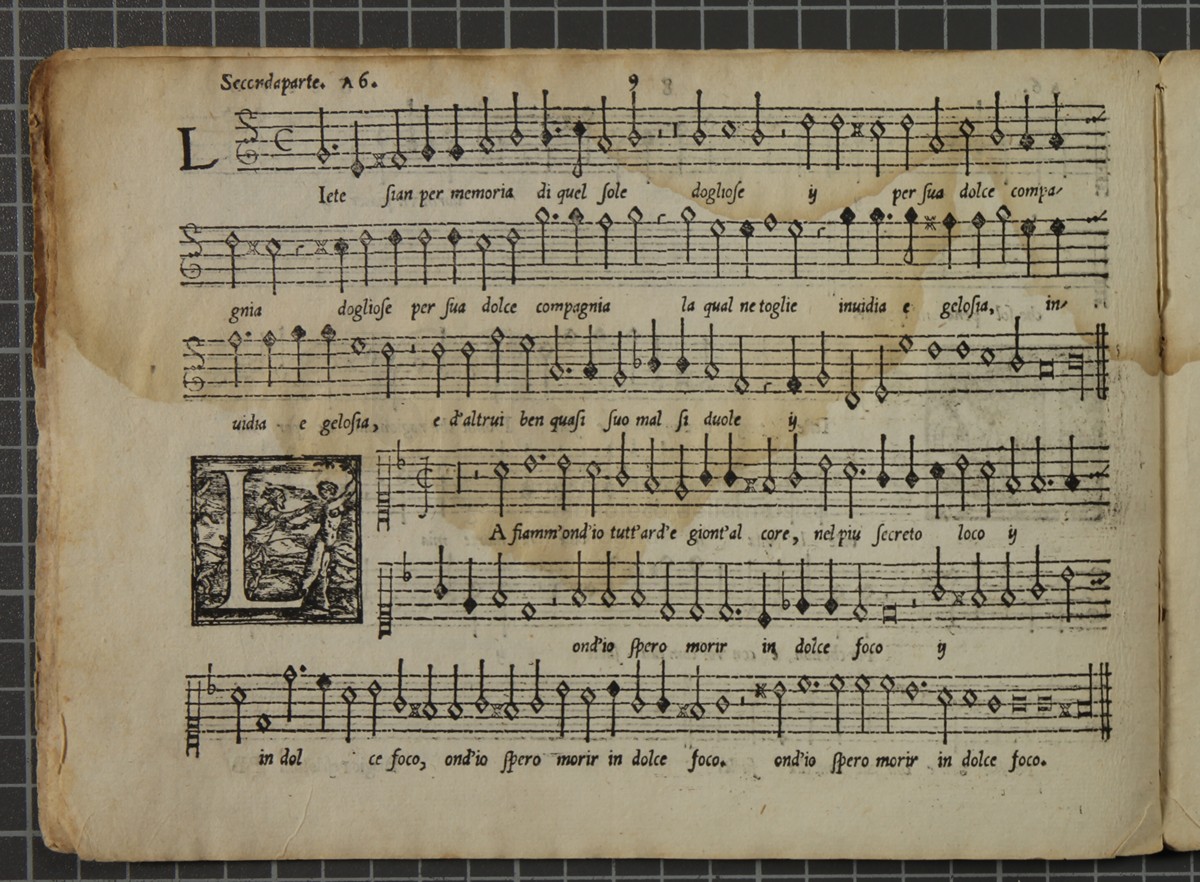 Secondaparte. A 6. 9
L
Iete ſian per memoria di quel ſole doglioſe ij per ſua dolce compa-
gnia doglioſe per ſua dolce compagnia la qual ne toglie inuidia e geloſia, in-
uidia e geloſia, e d'altrui ben quaſi ſuo mal ſi duole ij
L
A fiamm'ond'io tutt'ard'e giont'al core, nel piu ſecreto loco ij
ond'io ſpero morir in dolce foco ij
in dol ce foco, ond'io ſpero morir in dolce foco. ond'io ſpero morir in dolce foco.